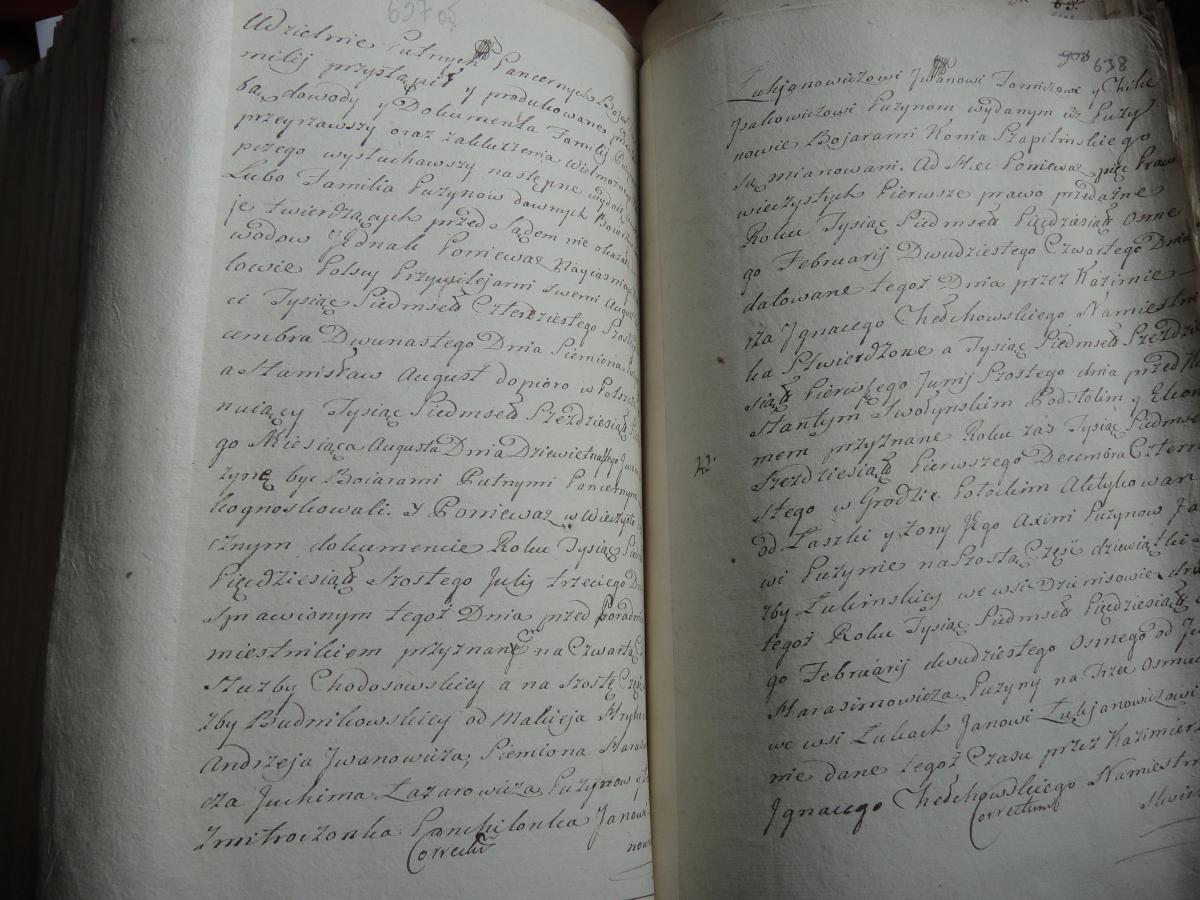 637 об
Udzielnie Putnych Pancernych Bojar
milij przystąpił y produkowane
dowody y Dokumenta Familij
przeyrzawszy oraz zabliżenia Wielmożne
pczego wysłuchawszy następne wydaie
Lubo Familia Puzynow dawnych Boiarow
je twierdzących przed Sądem nie okazała
wodow Jednak Ponieważ Nayiasnieysi
lowie Polscy Przywilejami swemi August
ci Tysiąc Siedmset Czterdziestego Szostego
cembra Dwunastego Dnia Siemiona
a Stanisław August dopioro w Polszcze
nuiący Tysiąc Siedmset Szeździesiąt
go Miesiąca Augusta Dnia Dziewietnastego
zynę byc Boiarami Putnymi Pancernymi
kognoskowali. Y Ponieważ w Wieczysto
cznym dokumencie Roku Tysiąc Siedm
Pięćdziesiąt Szostego Julij trzeciego Dnia
sprawionym tegoż Dnia przed
miestnikiem przyznane na Czwartą
służby Chodosowskiey a na szostę Częsc
zby Budnikowskiey od Makieja
Andrzeja Jwanowicza, Siemiona Haras
cza Juchima Łazarowicza Puzynow y
Zmitroczonka Panchilonka Janowi
Correctum
638
Łukjanowiczowi Jwanowi Tomiczowi y Chile
Jsakowiczowi Puzynom wydanym iż Puzy
nowie Bojarami Konia Szapilinskiego
są mianowani. Ad Hec Ponieważ pięc Praw
wieczystych Pierwsze prawo przedażne
Roku Tysiąc Siedmset Pięćdziesiąt Osme
go Februarij Dwudziestego Czwartego Dnia
datowane tegoż Dnia przez Kazimie
rza Jgnacego Chełchowskiego Namiestni
ka Stwierdzone a Tysiąc Siedmset Szeździe
siąt Pierwszego Junij Szostego dnia przed
stantym Swołynskim Podstolim y
mem przyznane Roku zaś Tysiąc Siedmse
Szeździesiąt Pierwszego Decembra Cztern
stego w Grodzie Połockim Aktykowan
od Łaszki y żony Jego Aximi Puzynow
wi Puzynie na Szostą Częśc dziewiątki
zby Lubinskiey we wsi Dzienisowie
tegoż Roku Tysiąc Siedmset Pięćdziesiąt
go Februarij dwudziestego Osmego od
Harasimowicza Puzyny na Trzy Osmu
we wsi Lubach Janowi Łukjanowiczowi
nie dane tegoż Czasu przez Kazimierz
Jgnacego Chełchowskiego Namiestni
Correctum